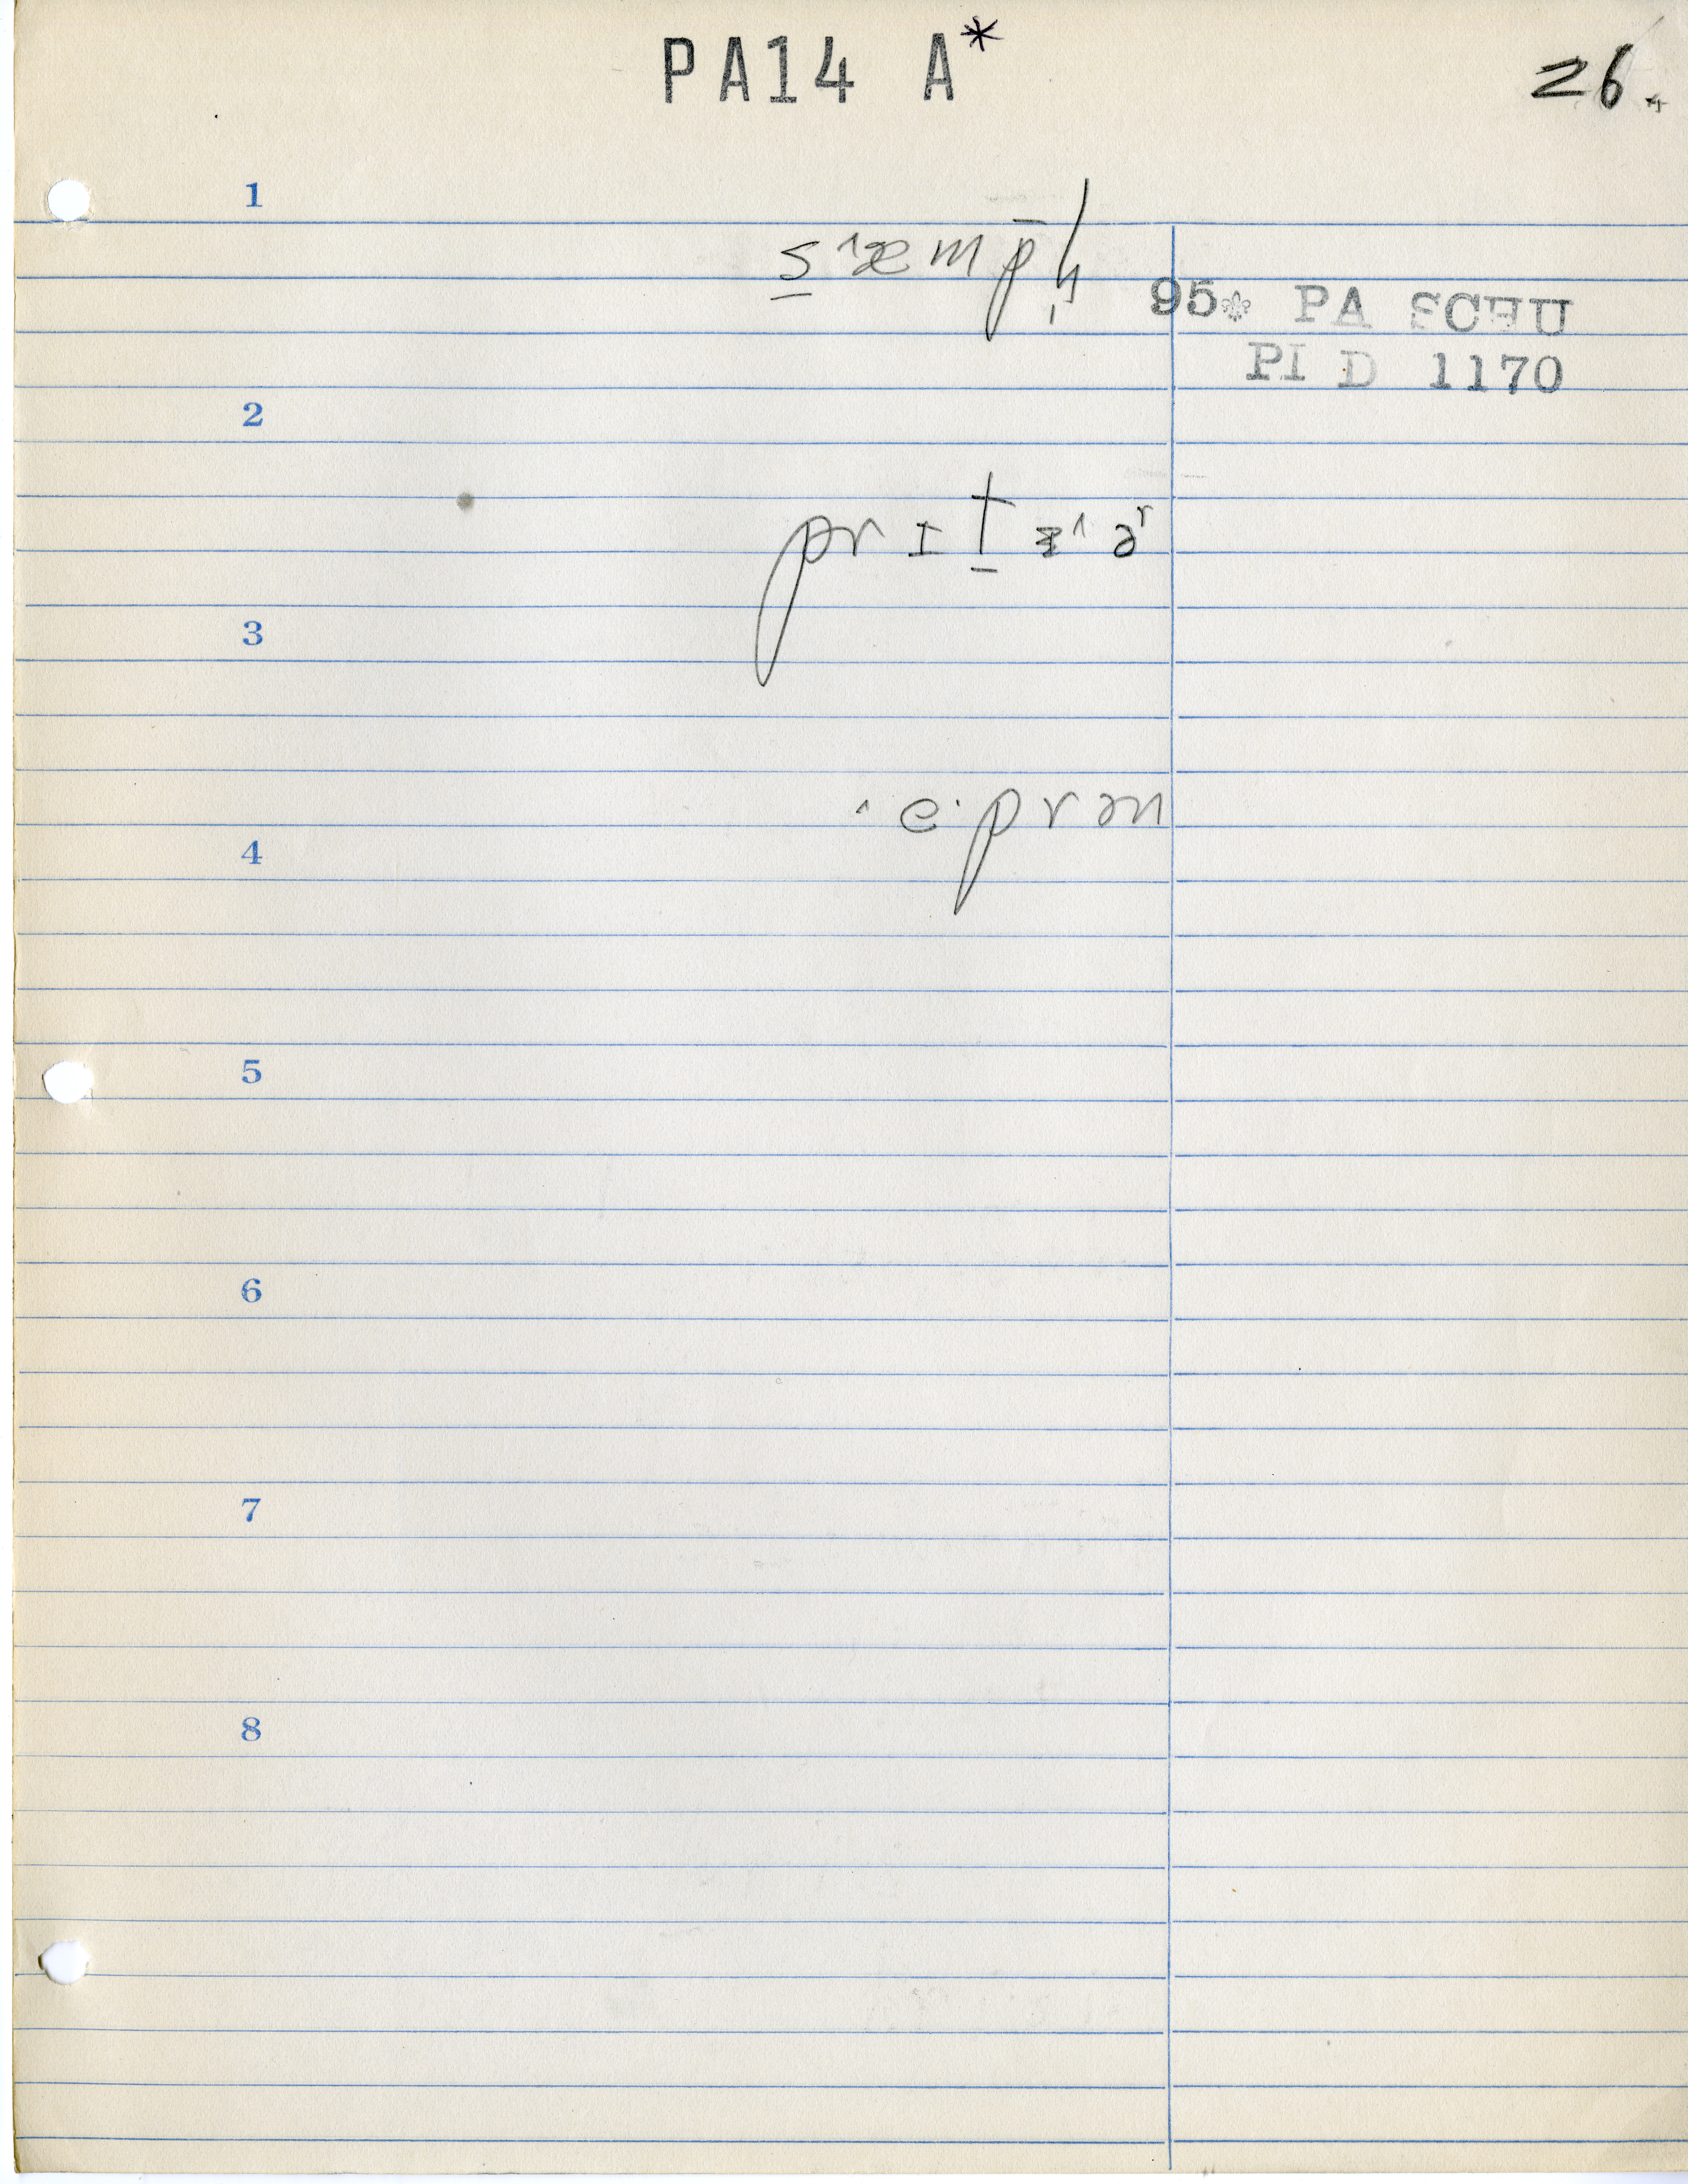 PA14 A*
26.
1
s̠ ˄æ m p̄ ɦ̩
95⚜ PA SCHU
PI D 1170
2
pr ɪ t̠ ɪ˄ ə ʳ
3
˄ e· p r ə n
4
5
6
7
8